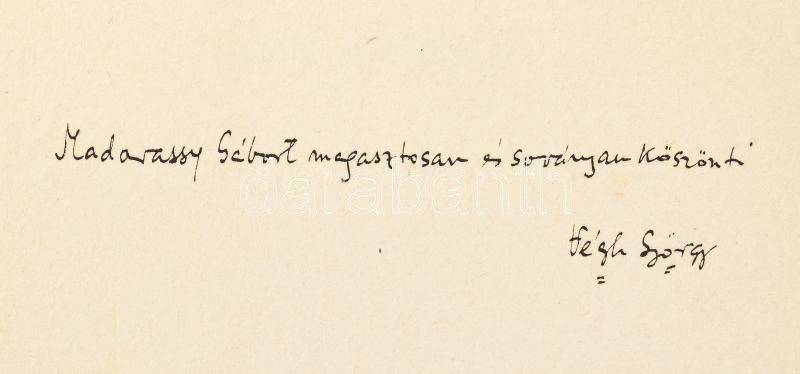 Madarassy Gábort magasztosan és soványan köszönti
darabanth
Végh György